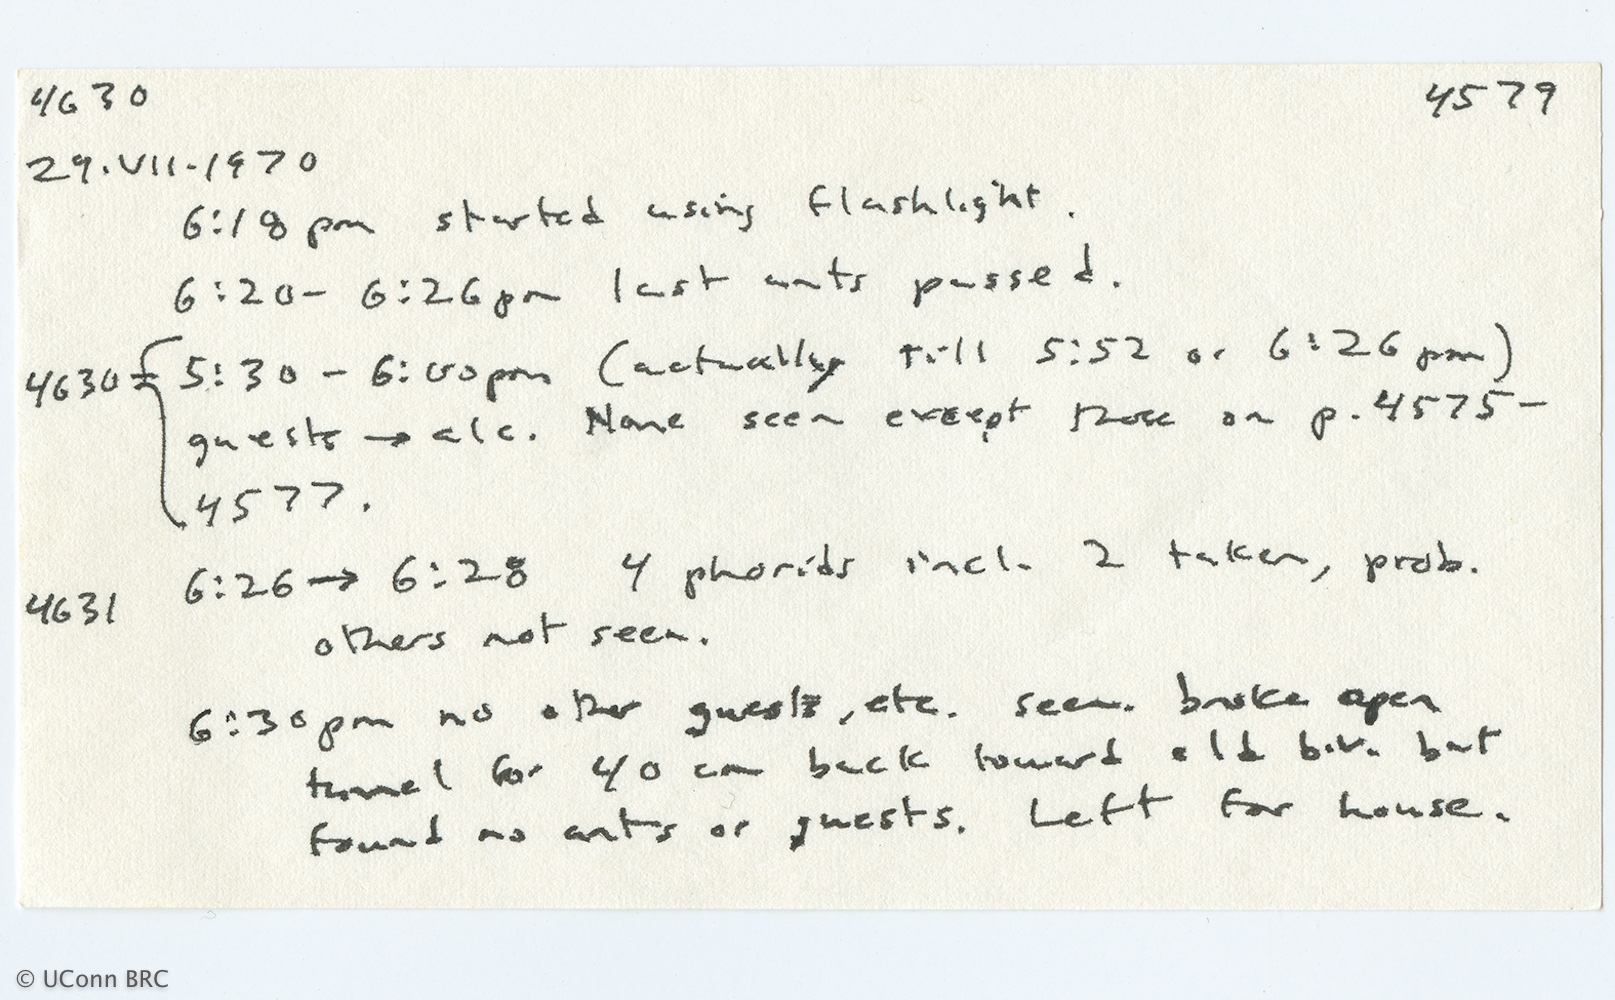 4630 4579
29.VII-1970
6:18 pm started using flashlight.
6:20- 6:26 pm last ants passed.
4630 5:30 - 6:00 pm (actually till 5:52 or 6:26 pm)
guests → alc. None seen except those on p. 4575-
4577.
6:26 → 6:28 4 phorids incl. 2 taken, prob.
4631
others not seen.
6:30 pm no other guests, etc. seen. broke open
tunnel for 40 cm back toward old biv. but
found no ants or guests. Left for house.
© UConn BRC